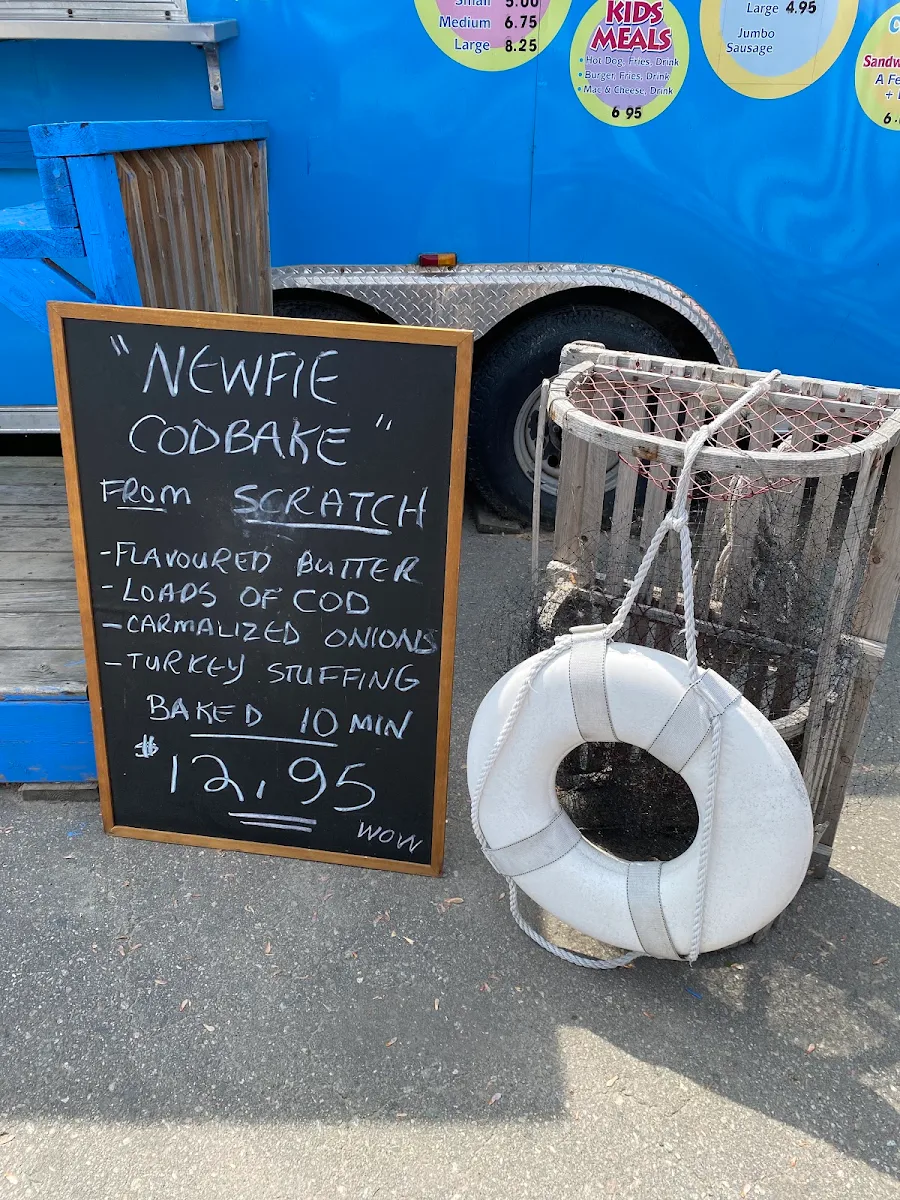 Small 5.00
Medium 6.75
Large 8.25
KIDS
MEALS
• Hot Dog, Fries, Drink
• Burger, Fries, Drink
• Mac & Cheese, Drink
6 95
Large 4.95
Jumbo
Sausage
A
+
"NEWFIE
CODBAKE"
FROM SCRATCH
-FLAVOURED BUTTER
-LOADS OF COD
-CARMALIZED ONIONS
-TURKEY STUFFING
BAKED 10 MIN
$12,95
WOW